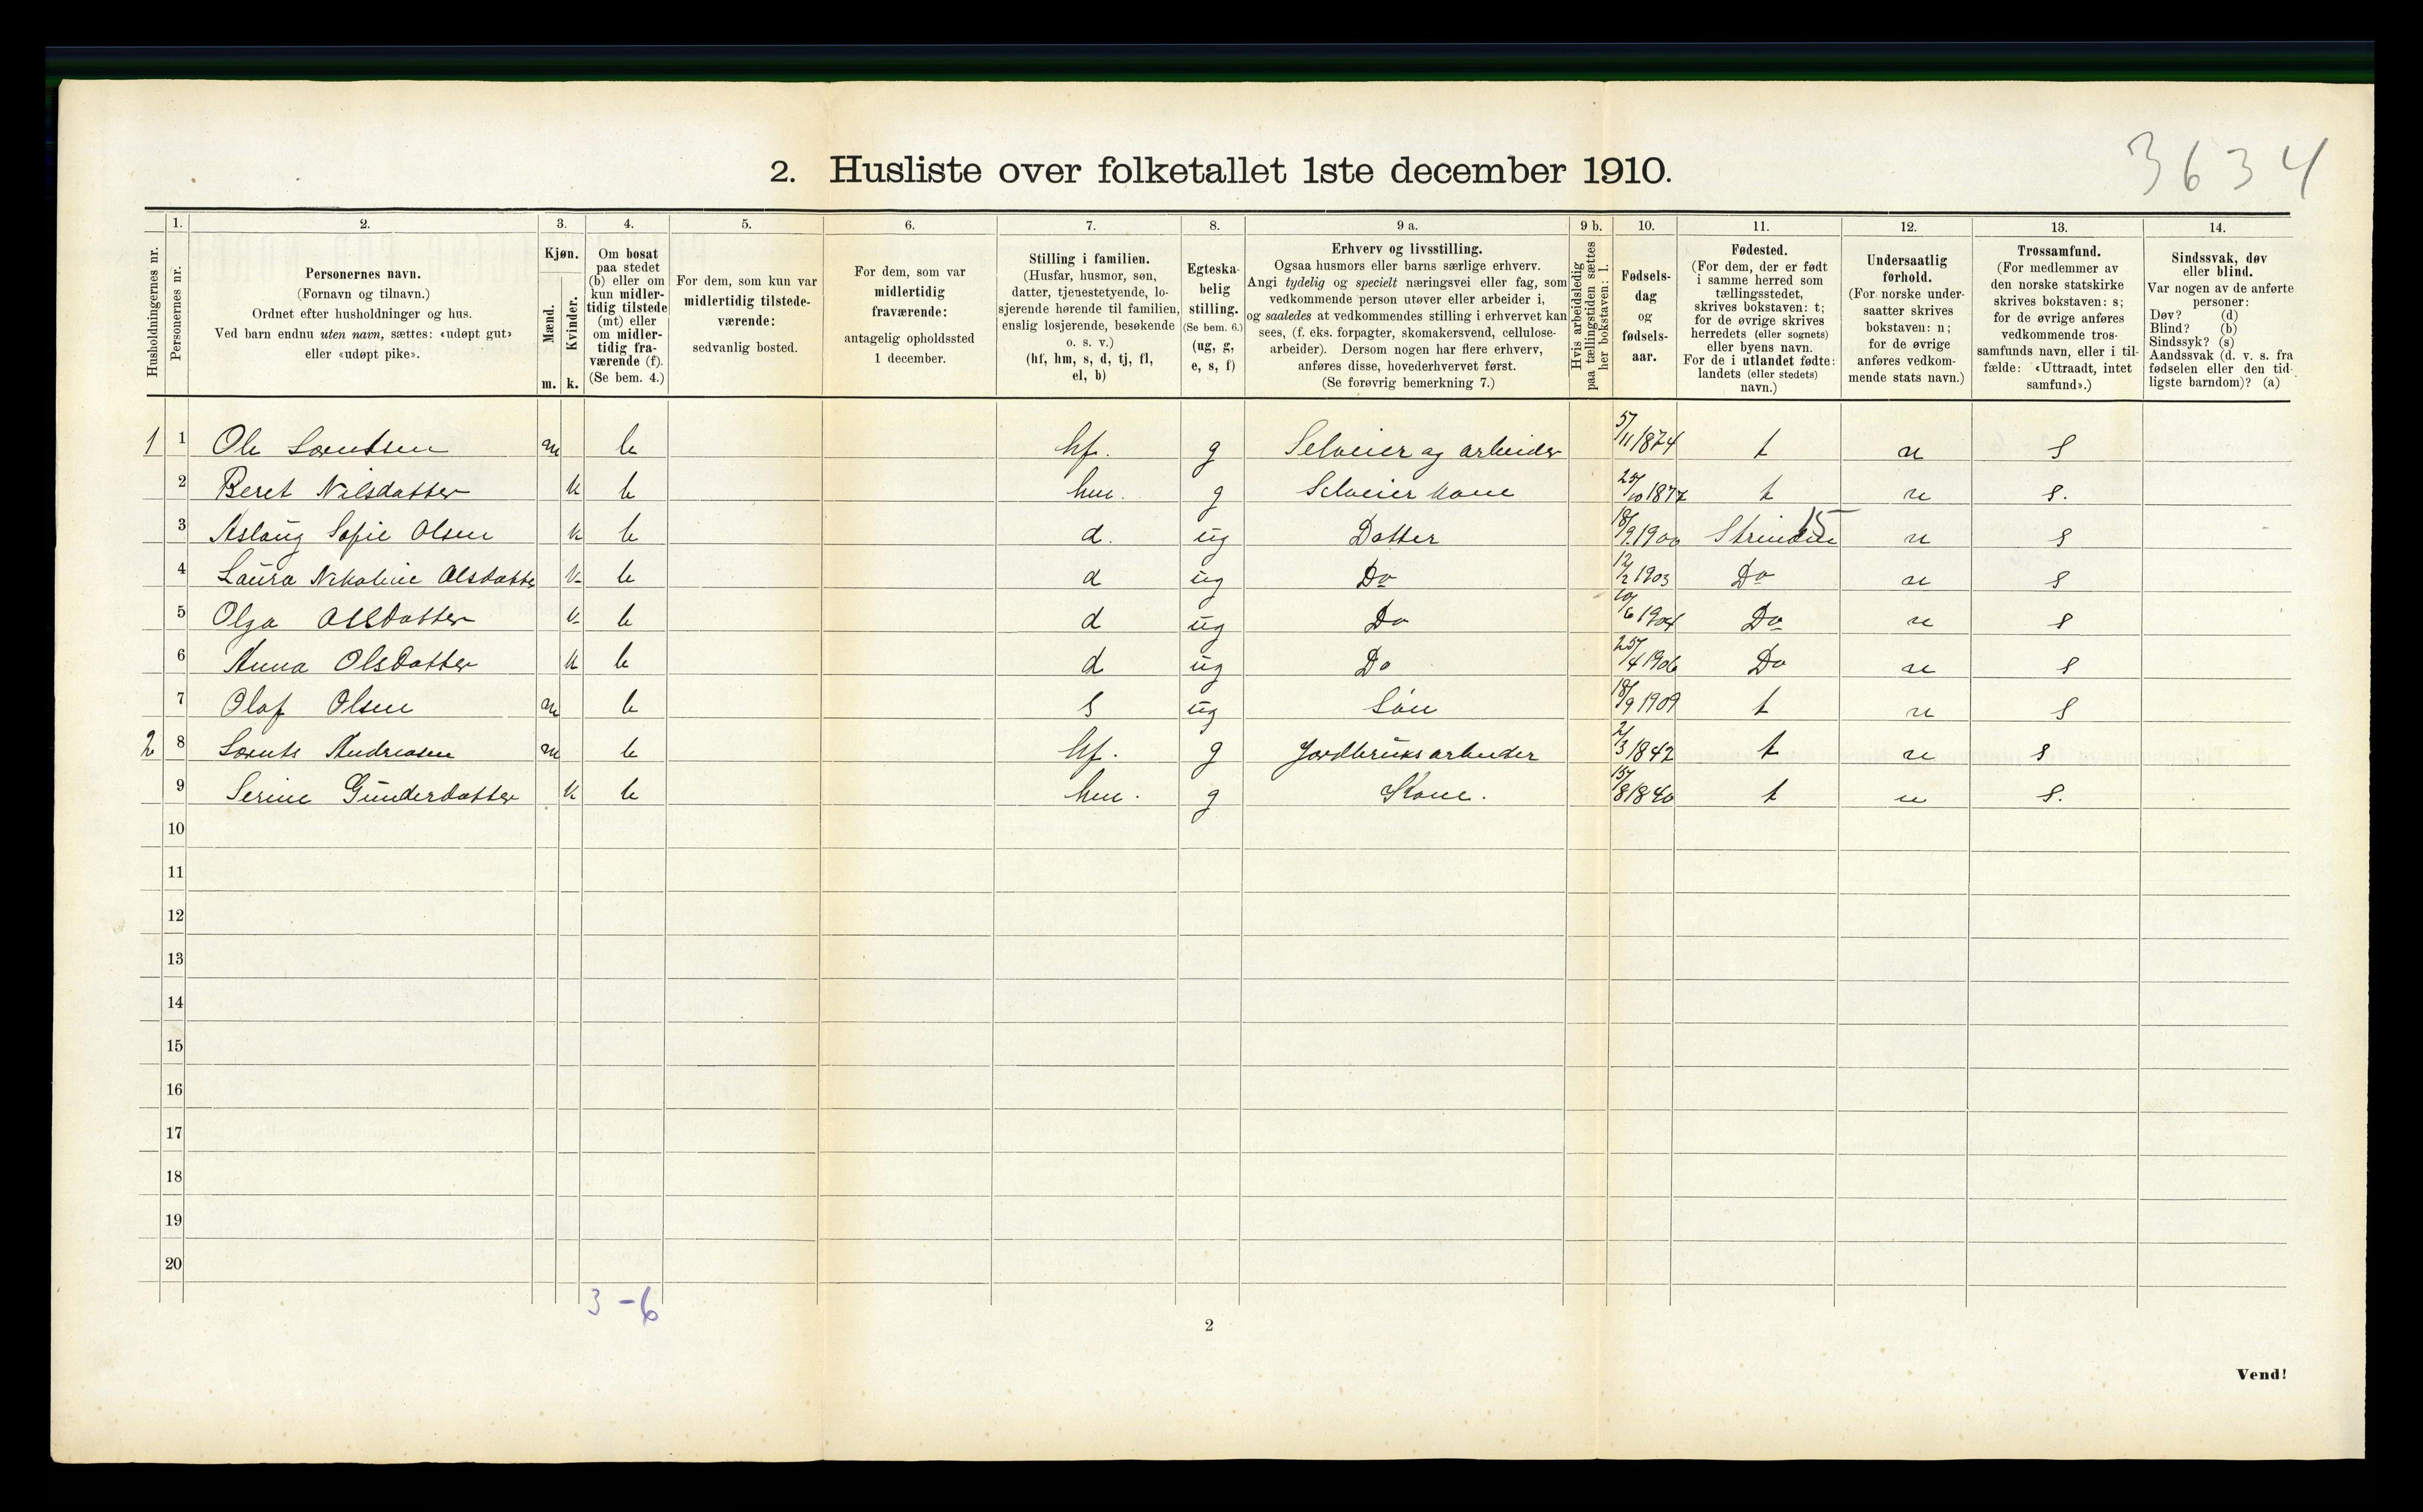 3634
2. Husliste over folketallet 1ste december 1910.
Husholdningernes nr.
1. Personernes nr.
2. Personernes navn. (Fornavn og tilnavn.) Ordnet efter husholdninger og hus. Ved barn endnu uten navn, sættes: «udøpt gut» eller «udøpt pike».
3. Kjøn. Mænd. m. Kvinder. k.
4. Om bosat paa stedet (b) eller om kun midlertidig tilstede (mt) eller om midlertidig fraværende (f). (Se bem. 4.)
5. For dem, som kun var midlertidig tilstedeværende: sedvanlig bosted.
6. For dem, som var midlertidig fraværende: antagelig opholdssted 1 december.
7. Stilling i familien. (Husfar, husmor, søn, datter, tjenestetyende, losjerende hørende til familien, enslig losjerende, besøkende o. s. v.) (hf, hm, s, d, tj, fl, el, b)
8. Egteskabelig stilling. (Se bem. 6.) (ug, g, e, s, f)
9 a. Erhverv og livsstilling. Ogsaa husmors eller barns særlige erhverv. Angi tydelig og specielt næringsvei eller fag, som vedkommende person utøver eller arbeider i, og saaledes at vedkommendes stilling i erhvervet kan sees, (f. eks. forpagter, skomakersvend, cellulosearbeider). Dersom nogen har flere erhverv, anføres disse, hovederhvervet først. (Se forøvrig bemerkning 7.)
9 b. Hvis arbeidsledig paa tællingstiden sættes her bokstaven: l.
10. Fødselsdag og fødselsaar.
11. Fødested. (For dem, der er født i samme herred som tællingsstedet, skrives bokstaven: t; for de øvrige skrives herredets (eller sognets) eller byens navn. For de i utlandet fødte: landets (eller stedets) navn.)
12. Undersaatlig forhold. (For norske undersaatter skrives bokstaven: n; for de øvrige anføres vedkommende stats navn.)
13. Trossamfund. (For medlemmer av den norske statskirke skrives bokstaven: s; for de øvrige anføres vedkommende trossamfunds navn, eller i tilfælde: «Uttraadt, intet samfund».)
14. Sindssvak, døv eller blind. Var nogen av de anførte personer: Døv? (d) Blind? (b) Sindssyk? (s) Aandssvak (d. v. s. fra fødselen eller den tidligste barndom)? (a)
1 1 Ole Lorentsen m b hf. g Selveier og arbeider 5/11 1874 t n s
2 Beret Nilsdatter k b hm. g Selveier kone t n s.
3 Aslaug Sofie Olsen k b d. ug Datter 18/9 1900 Strinden 15 n s
4 Laura Nikoline Olsdatter k b d ug Do 12/2 1903 Do n s
5 Olga Olsdatter k b d ug Do 1904 Do n s
6 Anna Olsdatter k b d ug Do 25/4 1906 Do n s
7 Olaf Olsen m b s ug Søn 18/9 1909 t n s
2 8 Lorents Andreasen m b hf. g Jordbruksarbeider 2/3 1842 t n s
9 Serine Gunderdatter k b hm. g Kone. 15/8 1840 t n s.
10
11
12
13
14
15
16
17
18
19
20
3 - 6
2
Vend!